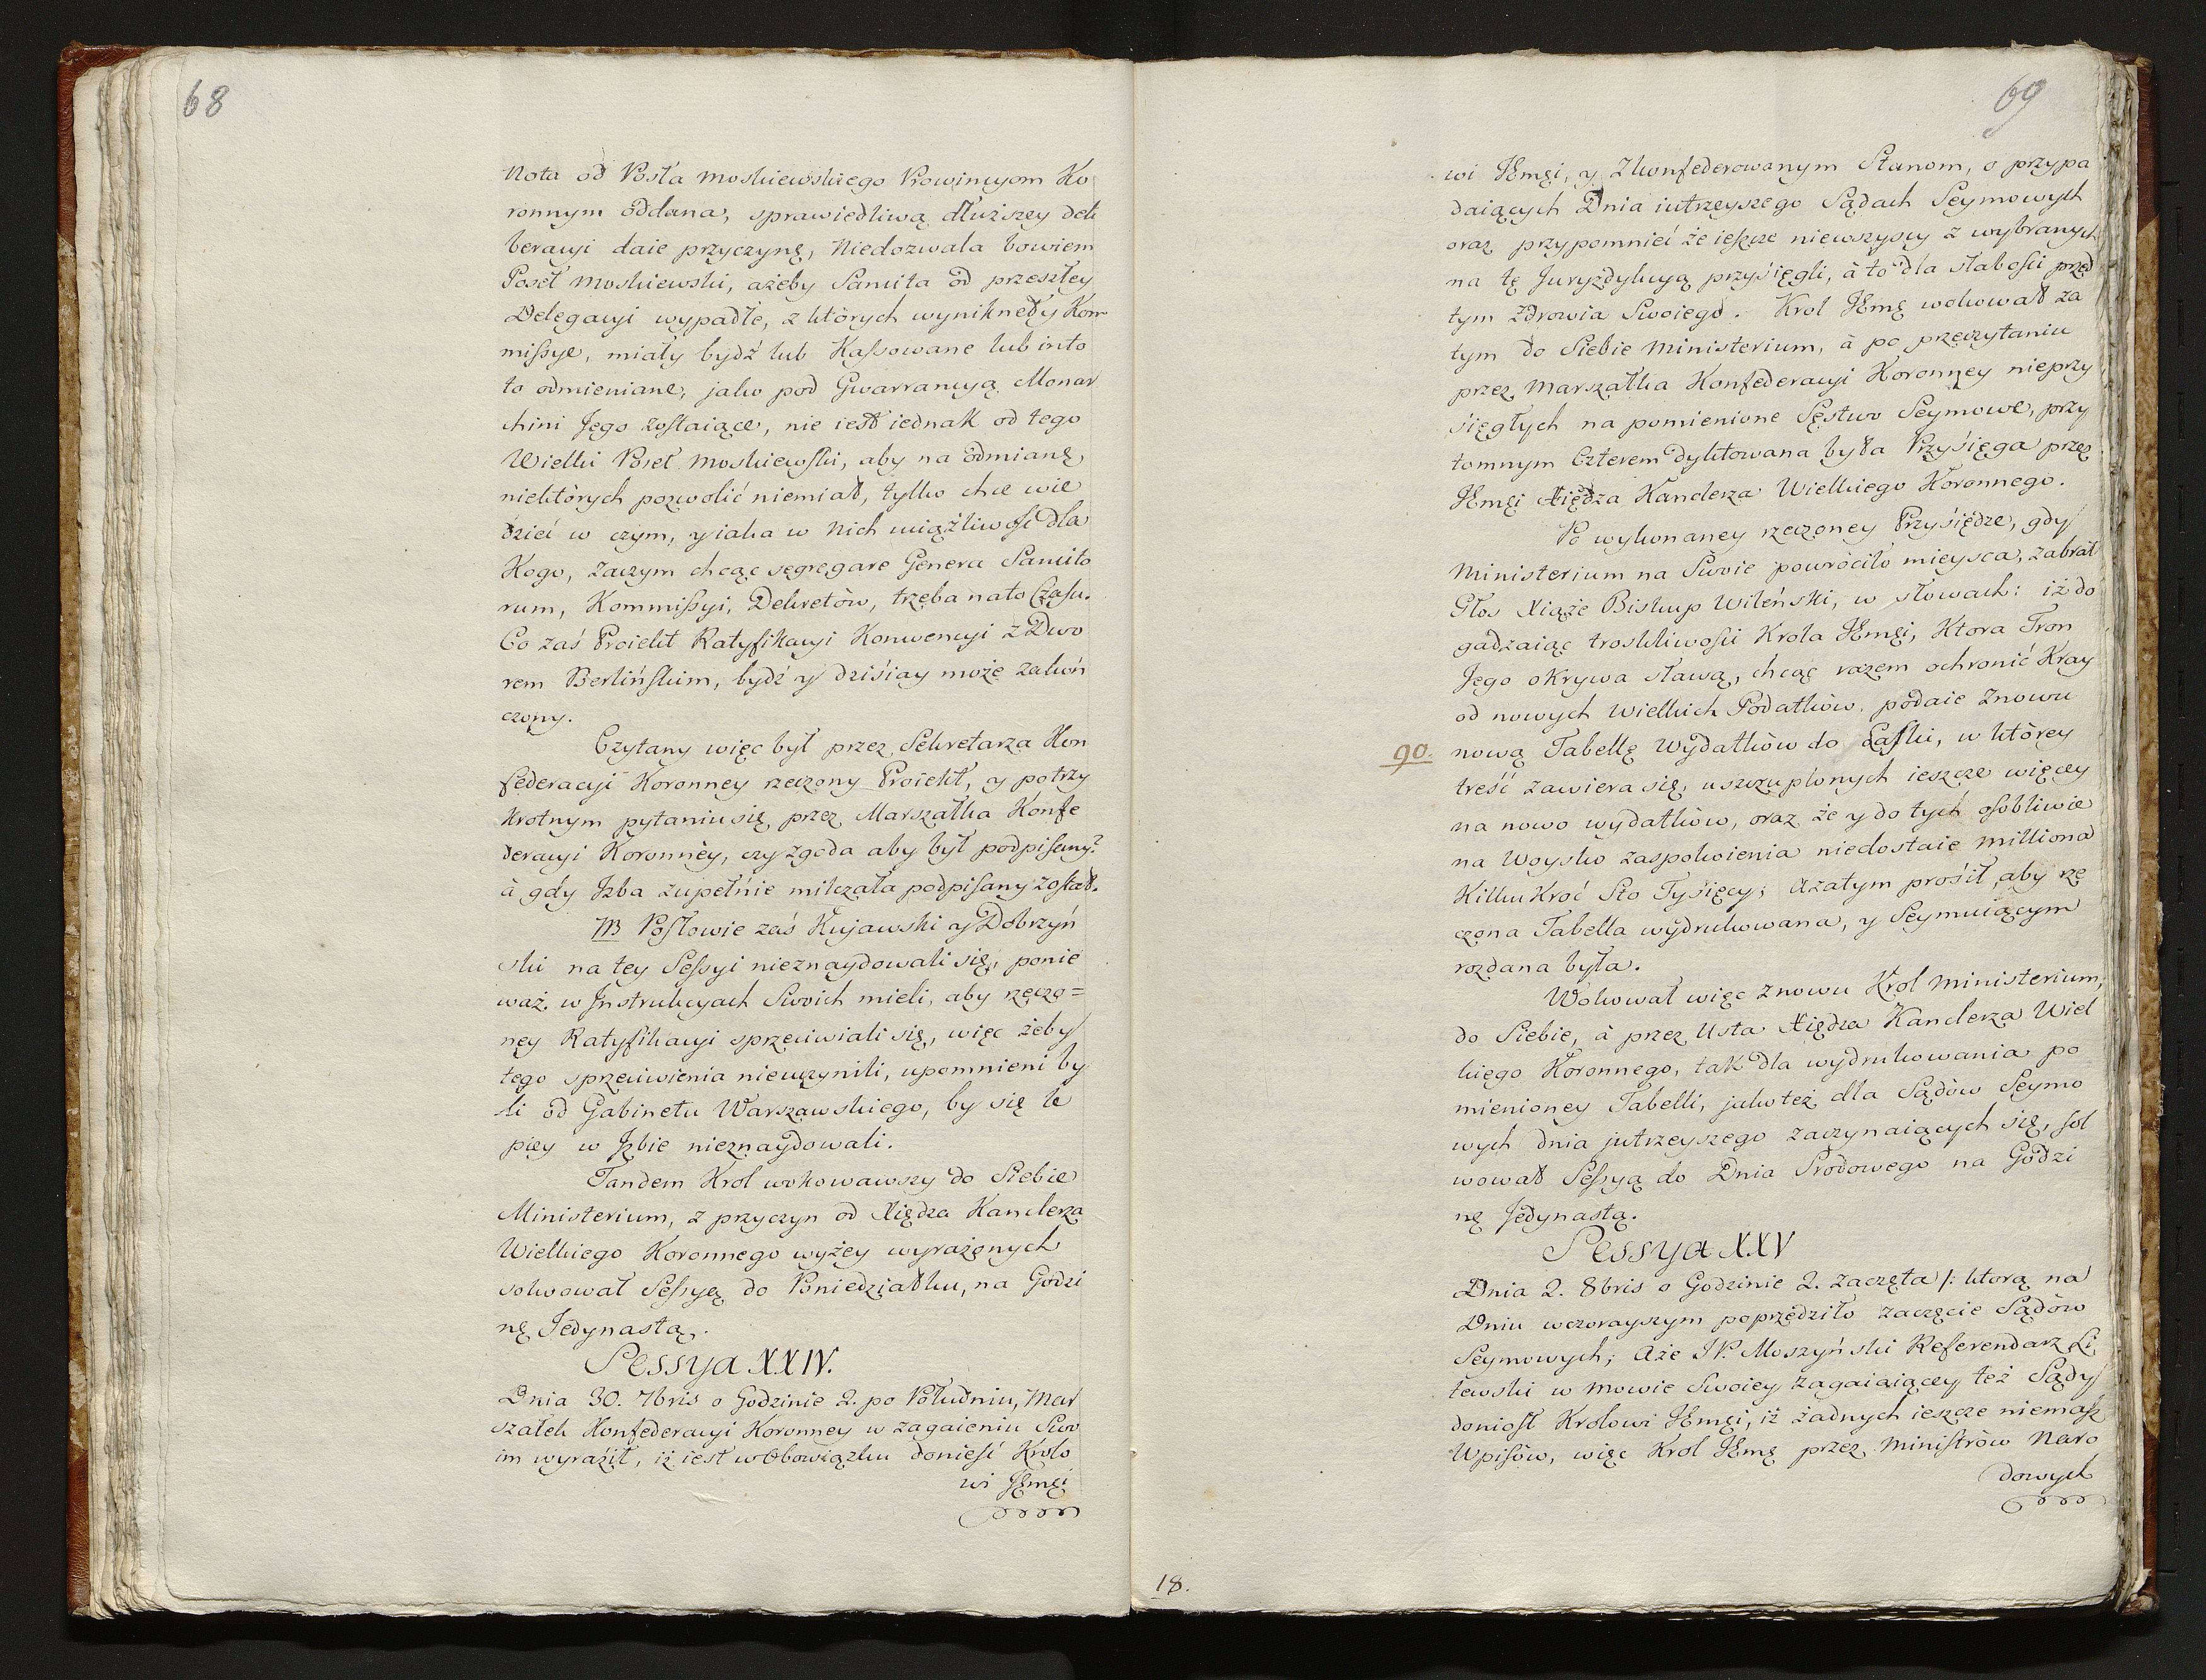 68
Nota od Posła Moskiewskiego Prowincyom Ko
ronnym oddana, sprawiedliwą dłuższey deli
beracyi daie przyczynę, Niedozwala bowiem
Poseł Moskiewski, ażeby Sancita od przeszłey
Delegacyi wypadłe, z których wyniknęły Kom
missye, miały bydź lub Kassowane lub in to
to odmieniane, jako pod Gwarrancyą Monar
chini Jego zostaiące, nie iest iednak od tego
Wielki Poseł Moskiewski, aby na odmianę,
niektórych pozwolić niemiał, tylko chce wie
dzieć w czym, y iaka w Nich uciążliwość dla
Kogo, zaczym chcąc segregare Genera Sancito
rum, Kommissyi, Dekretów, trzeba na to Czasu.
Co zaś Proiekt Ratyfikacyi Konwencyi z Dwo
rem Berlińskim, bydź y dzisiay może zakoń
czony.
Czytany więc był przez Sekretarza Kon
federacyi Koronney rzeczony Proiekt, y po trzy
krotnym pytaniu się przez Marszałka Konfe
deracyi Koronnéy, czy zgoda aby był podpisany?
à gdy Izba zupełnie milczała podpisany został.
NB Posłowie zaś Kujawski y Dobrzyń
ski na tey Sessyi nieznaydowali się, ponie
waż w Instrukcyach Swoich mieli, aby rzeczo=
ney Ratyfikacyi sprzeciwiali się, więc żeby
tego sprzeciwienia nieuczynili, upomnieni by
li od Gabinetu Warszawskiego, by się le
piey w Izbie nieznaydowali.
Tandem Krol wokowawszy do Siebie
Ministerium, z przyczyn od Xiędza Kanclerza
Wielkiego Koronnego wyżey wyrażonych
solwował Sessyą do Poniedziałku, na Godzi
nę Jedynastą.
Sessya XXIV.
Dnia 30. 7bris o Godzinie 2. po Południu, Mar
szałek Konfederacyi Koronney w zagaieniu Swo
im wyraźił, iż iest w Obowiązku donieść Krolo
wi Jmci
69
wi Jmci, y Zkonfederowanym Stanom, o przypa
daiących Dnia iutrzeyszego Sądach Seymowych
oraz przypomnieć że ieszcze niewszyscy z wybranych
na tę Juryzdykcyą przysięgli, à to dla słabości przed
tym Zdrowia Swoiego. Krol Jmć wokował za
tym do Siebie Ministerium, à po przeczytaniu
przez Marszałka Konfederacyi Koronney nieprzy
sięgłych na pomienione Sęstwo Seymowe, przy
tomnym Czterem dyktowana była Przysięga przez
Jmci Xiędza Kanclerza Wielkiego Koronnego.
Po wykonaney rzeczoney Przysiędze, gdy
Ministerium na Swoie powróciło mieysca, zabrał
Głos Xiąże Biskup Wileński, w słowach: iż do
gadzaiąc troskliwości Krola Jmci, Ktora Tron
Jego okrywa sławą, chcąc razem ochronić Kray
od nowych Wielkich Podatków, podaie Znowu
90. nową Tabellę Wydatków do Laski, w którey
treść zawiera się, uszczuplonych ieszcze więcey
na nowo wydatków, oraz że y do tych osobliwie
na Woysko zaspokoienia niedostaie Milliona
Kilku Kroć Sto Tysięcy; A zatym prosił aby rze
czona Tabella wydrukowana, y Seymuiącym
rozdana była.
Wokował więc znowu Krol Ministerium,
do Siebie, à przez Usta Xiędza Kanclerza Wiel
kiego Koronnego, tak dla wydrukowania po
mienioney Tabelli, jako też dla Sądów Seymo
wych dnia jutrzeyszego zaczynaiących się, sol
wował Sessyą do Dnia Srodowego na Godzi
nę Jedynastą.
Sessya XXV
Dnia 2. 8bris o Godzinie 2. zaczęta /: ktorą na
Dniu wczorayszym poprzedziło zaczęcie Sądów
Seymowych; Aże JP. Moszyński Referendarz Li
tewski w Mowie Swoiey zagaiaiącey też Sądy
doniosł Krolowi Jmci, iż żadnych ieszcze niemasz
Wpisów, więc Krol Jmć przez Ministrów Naro
dowych
18.